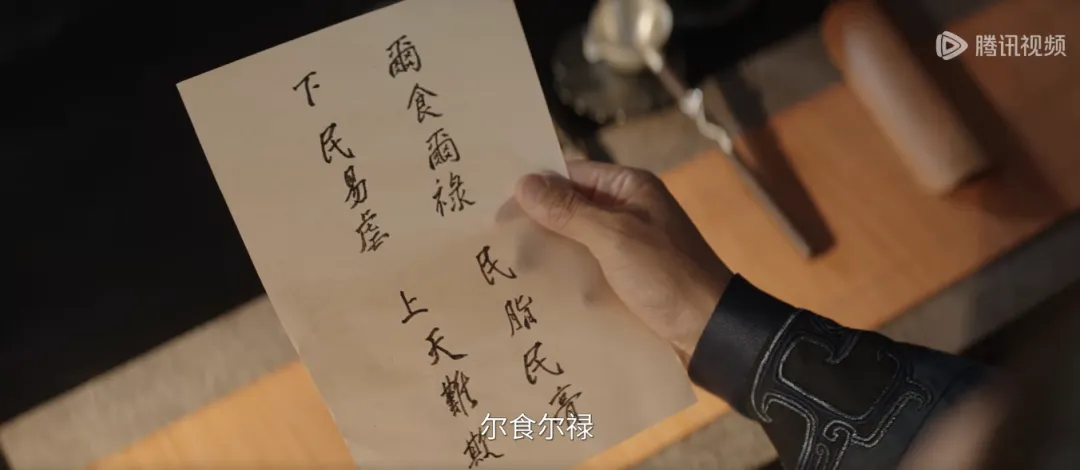 爾食爾祿 民脂民膏
下民易虐 上天難欺
尔食尔禄
腾讯视频